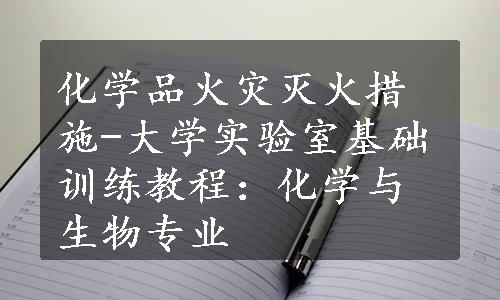 化学品火灾灭火措
施-大学实验室基础
训练教程：化学与
生物专业